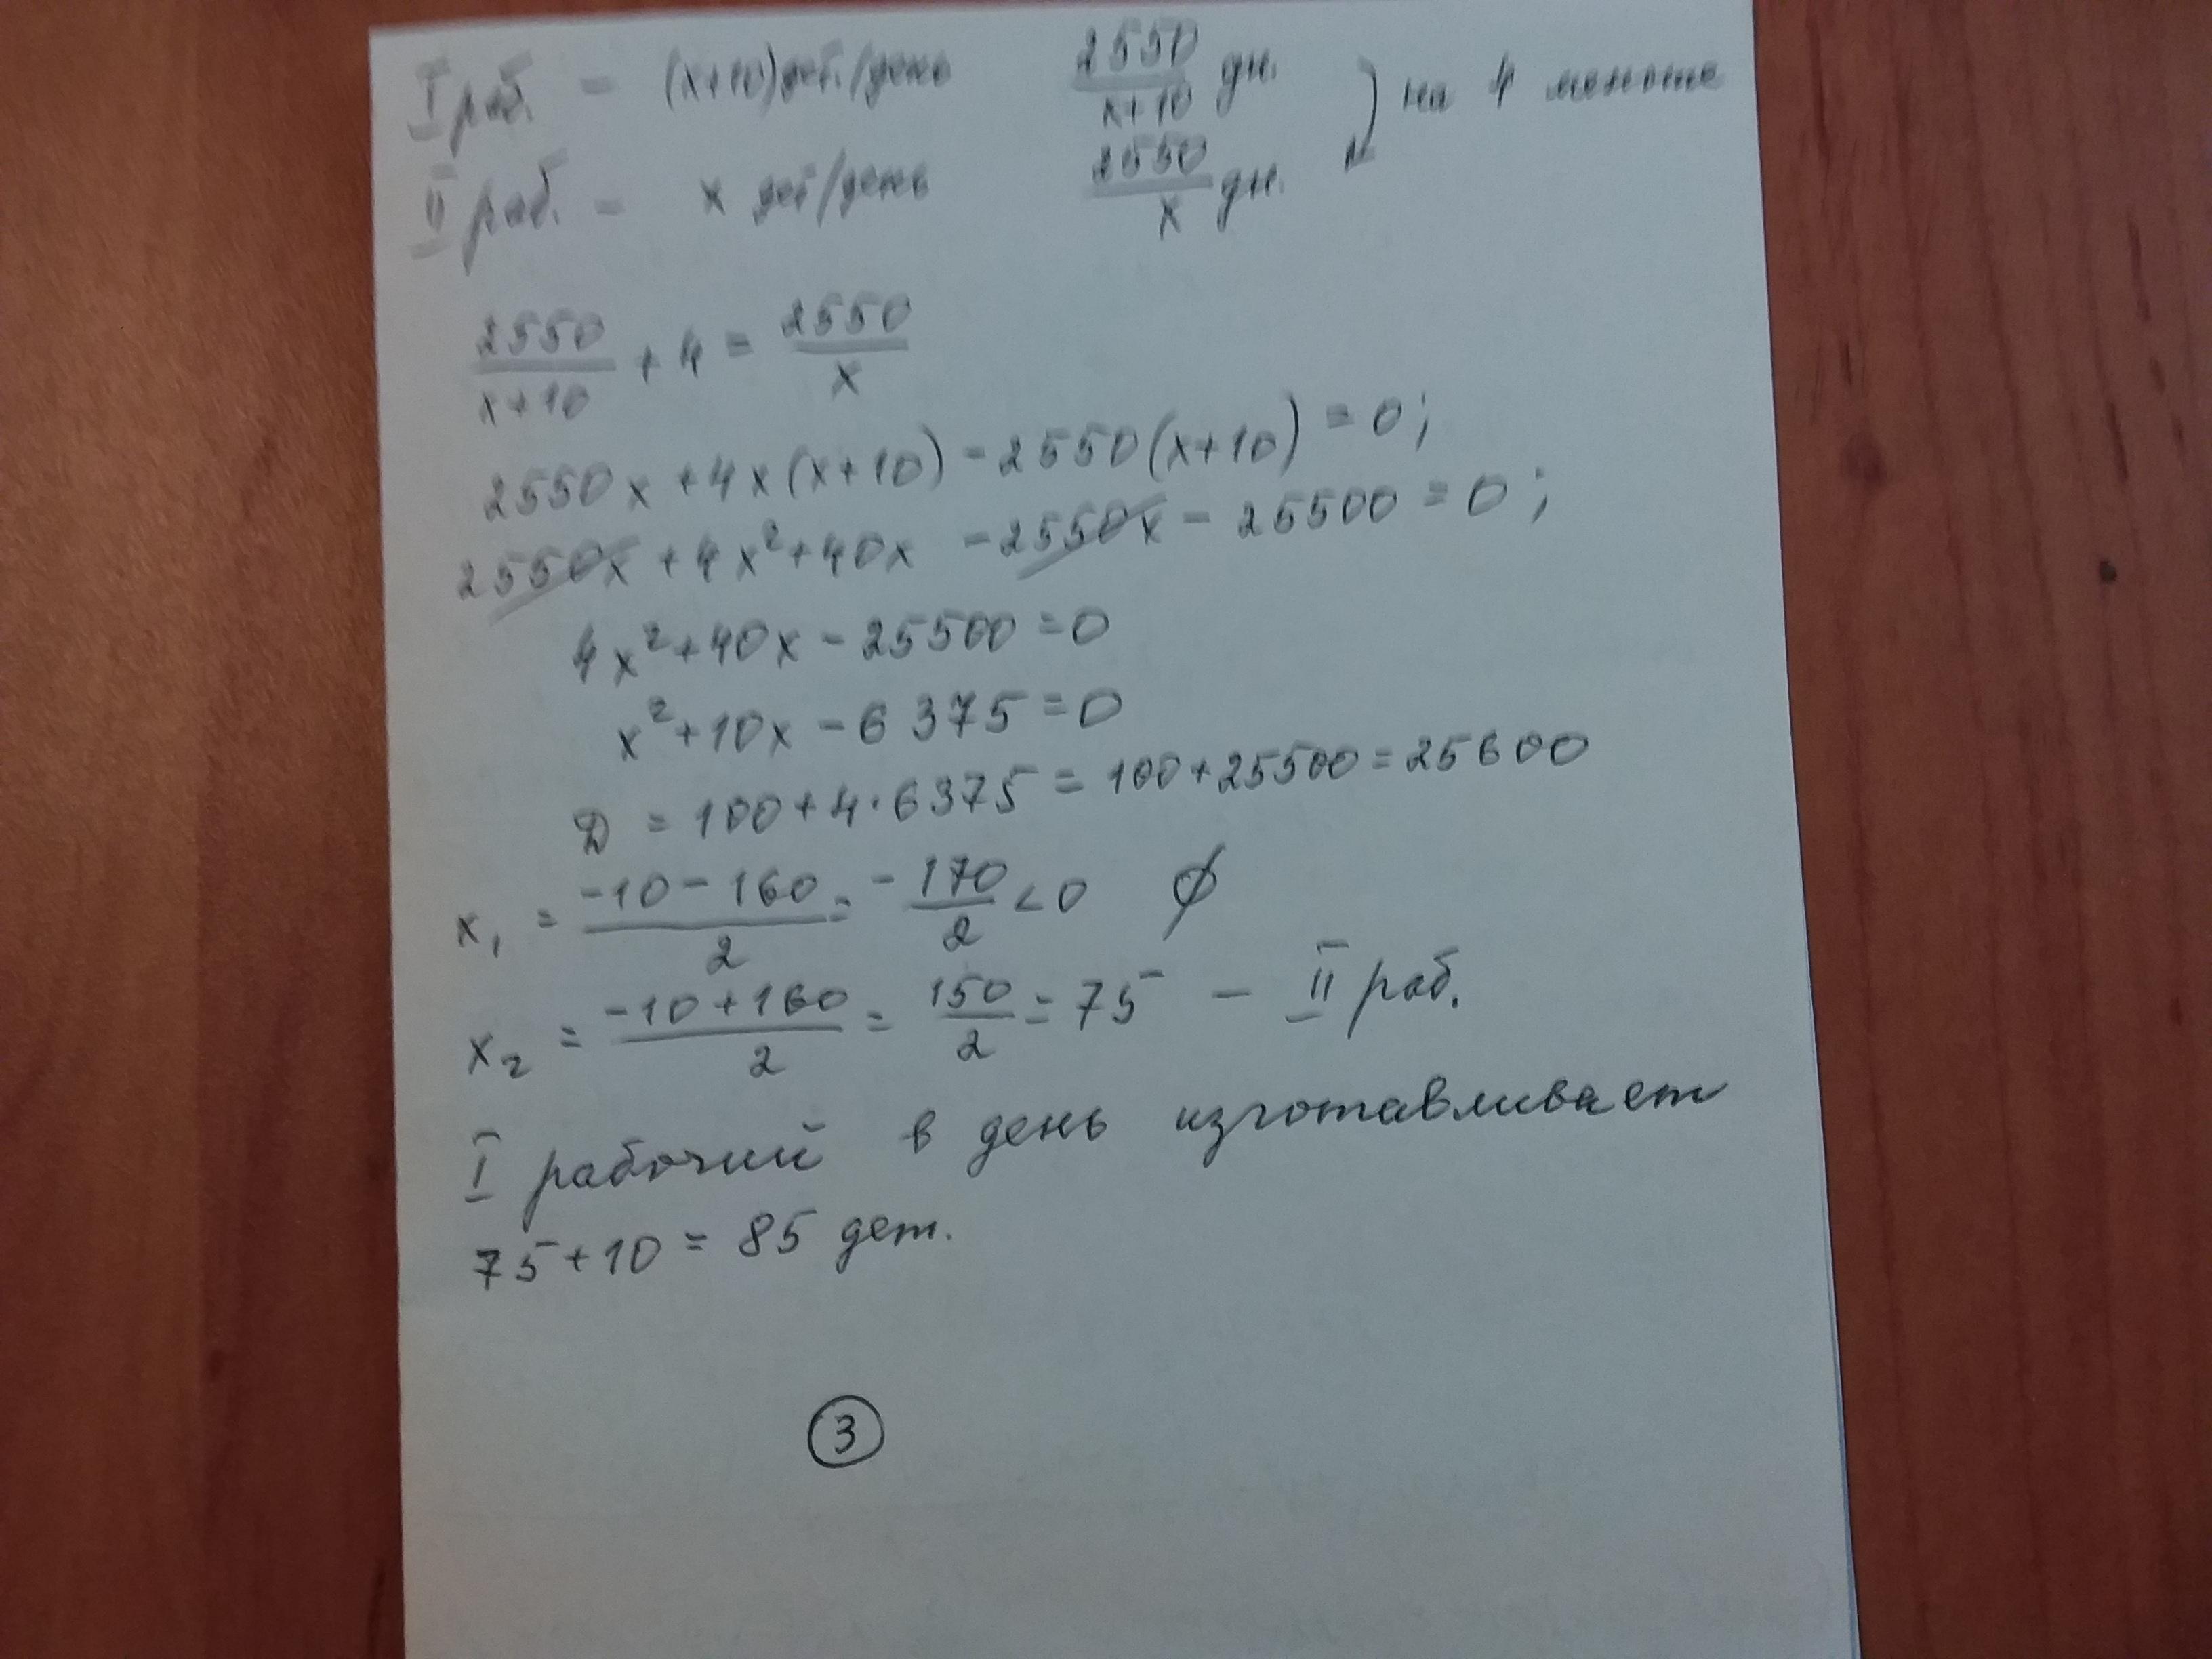 I раб. – (x+10) дет./день 2550/(x+10) дн. на 4 меньше
II раб. – x дет/день 2550/x дн.
2550/(x+10) + 4 = 2550/x
2550x + 4x(x+10) - 2550(x+10) = 0;
2550x + 4x² + 40x - 2550x - 25500 = 0;
4x² + 40x - 25500 = 0
x² + 10x - 6375 = 0
D = 100 + 4·6375 = 100 + 25500 = 25600
x₁ = (-10 - 160)/2 = -170/2 < 0 ∅
x₂ = (-10 + 160)/2 = 150/2 = 75 – II раб.
I рабочий в день изготавливает
75 + 10 = 85 дет.
3